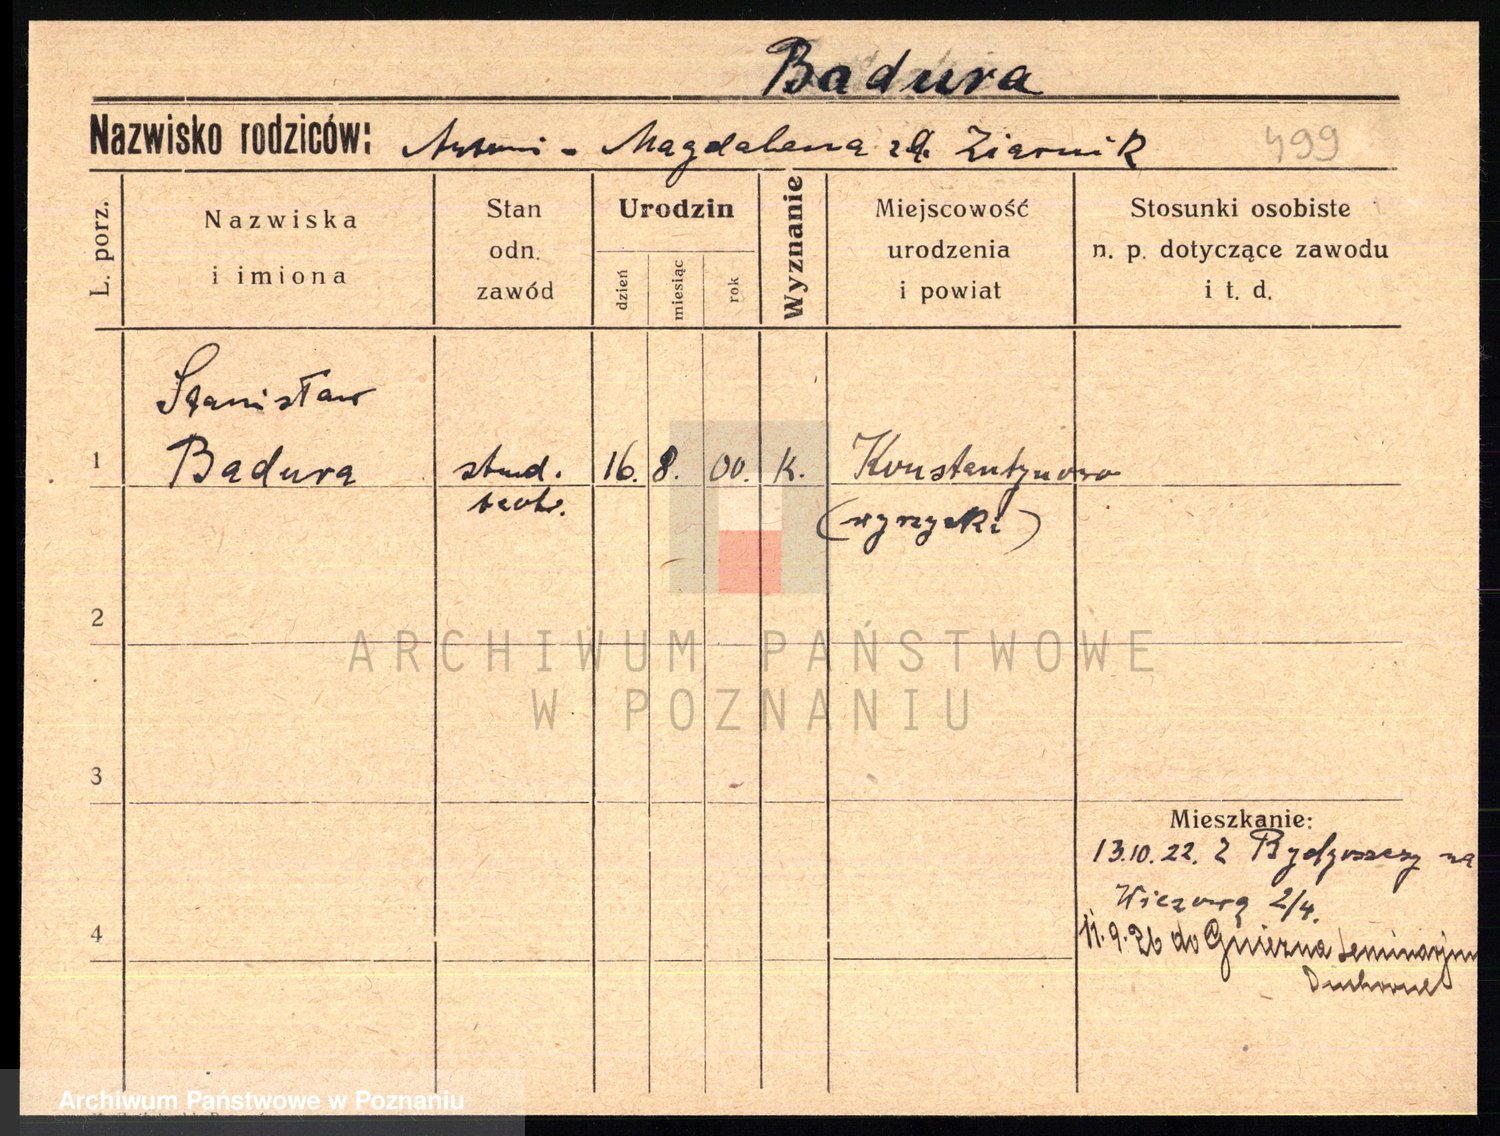 Badura
Nazwisko rodziców: Antoni - Magdalena zd. Ziarnik
499
L. porz.
Nazwiska
i imiona
Stan
odn.
zawód
Urodzin
dzień
miesiąc
rok
Wyznanie
Miejscowość
urodzenia
i powiat
Stosunki osobiste
n. p. dotyczące zawodu
i t. d.
Stanisław
1 Badura stud. 16. 8. 00. K. Konstantynowo
teol. (wyrzyski)
2
ARCHIWUM PAŃSTWOWE
W POZNANIU
3
Mieszkanie:
13.10.22. z Bydgoszczy na
2/4.
4
11.9.26 do Gniezna Seminarjum
Duchowne
Archiwum Państwowe w Poznaniu